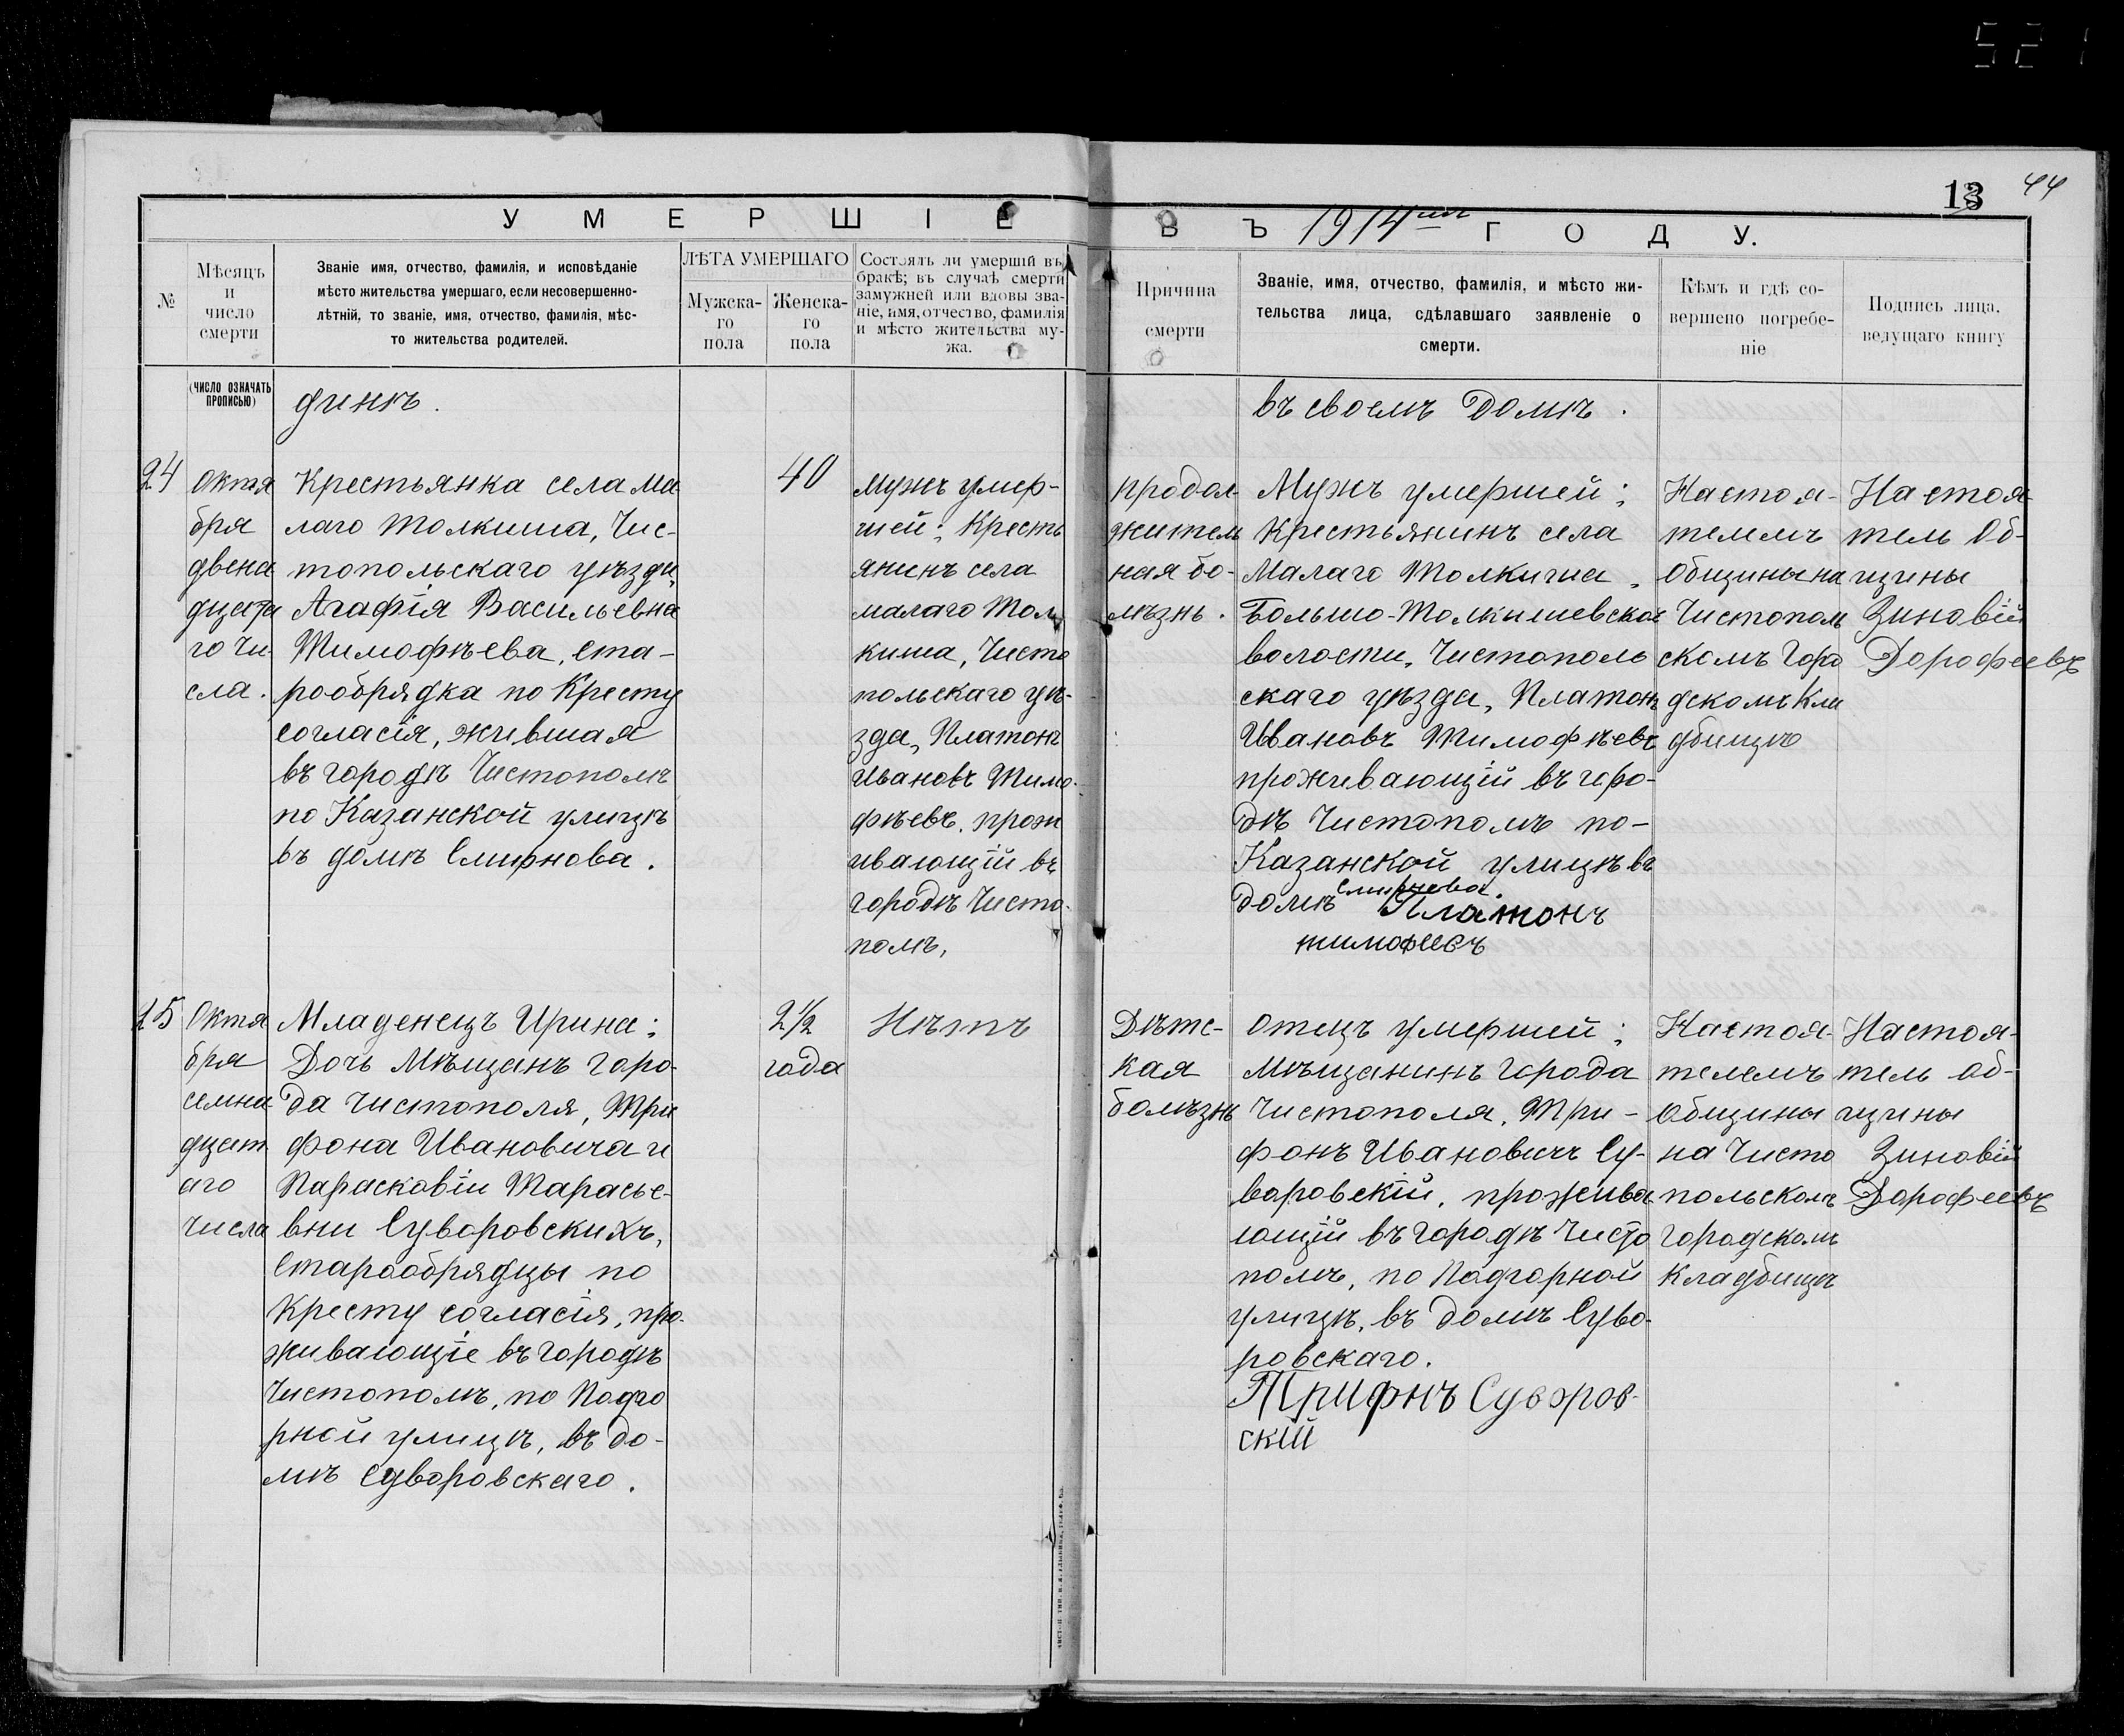 521
13 44
УМЕРШІЕ
ВЪ 1914мъ ГОДУ.
№
Мѣсяцъ
и
число
смерти
(ЧИСЛО ОЗНАЧАТЬ
ПРОПИСЬЮ)
Званіе имя, отчество, фамилія, и исповѣданіе
мѣсто жительства умершаго, если несовершенно-
лѣтній, то званіе, имя, отчество, фамилія, мѣс-
то жительства родителей.
ЛѢТА УМЕРШАГО
Мужска-
го
пола
Женска-
го
пола
Состоялъ ли умершій въ
бракѣ; въ случаѣ смерти
замужней или вдовы зва-
ніе, имя, отчество, фамилія
и мѣсто жительства му-
жа.
Причина
смерти
Званіе, имя, отчество, фамилія, и мѣсто жи-
тельства лица, сдѣлавшаго заявленіе о
смерти.
Кѣмъ и гдѣ со-
вершено погребе-
ніе
Подпись лица,
ведущаго книгу
динѣ.
въ своемъ домѣ.
24
Октя
бря
двена
дцата
го чи
сла.
Крестьянка села Ма
лаго Толкиша, Чис-
топольскаго уѣзда,
Агафія Васильевна
Тимофѣева, ста-
рообрядка по Кресту
согласія, жившая
въ городѣ Чистополѣ
по Казанской улицѣ
въ домѣ Смирнова.
40
мужъ умер-
шей; Кресть
янинъ села
малаго Тол
киша, Чисто
польскаго уѣ-
зда, Платонъ
Ивановъ Тимо-
фѣевъ, прож
ивающій въ
городѣ Чисто-
полѣ,
продол
жительн
ная бо-
лѣзнь.
Мужъ умершей;
Крестьянинъ села
Малаго Толкиша,
Больше-Толкишевской
волости, Чистополь
скаго уѣзда, Платонъ
Ивановъ Тимофѣевъ
проживающій въ горо-
дѣ Чистополѣ по-
Казанской улицѣ въ
домѣ Смирнова.
Платонъ
тимофеевъ
Настоя-
телемъ
Общины на
Чистополь
скомъ Горо
дскомъ Кла
дбищѣ
Настоя
тель Об-
щины
Зиновій
Дорофеевъ
25
Октя
бря
семна
дцат
аго
числа
Младенецъ Ирина;
Дочь Мѣщанъ горо-
да Чистополя, Три
фона Ивановича и
Парасковіи Тарасье-
вни Суворовскихъ,
Старообрядцы по
Кресту согласія, про-
живающіе въ городѣ
Чистополѣ, по Подго
рной улицѣ, въ до-
мѣ Суворовскаго.
2½
года
Нѣтъ
Дѣтс-
кая
болѣзнь
Отецъ умершей;
Мѣщанинъ города
Чистополя, Три-
фонъ Ивановичъ Су-
воровскій, прожива
ющій въ городѣ Чисто
полѣ, по Подгорной
улицѣ, въ домѣ Суво-
ровскаго.
Трифнъ Суворов-
скій
Настоя-
телемъ
Общины
на Чисто
польскомъ
Городскомъ
Кладбищѣ
Настоя-
тель Об-
щины
Зиновій
Дорофеевъ